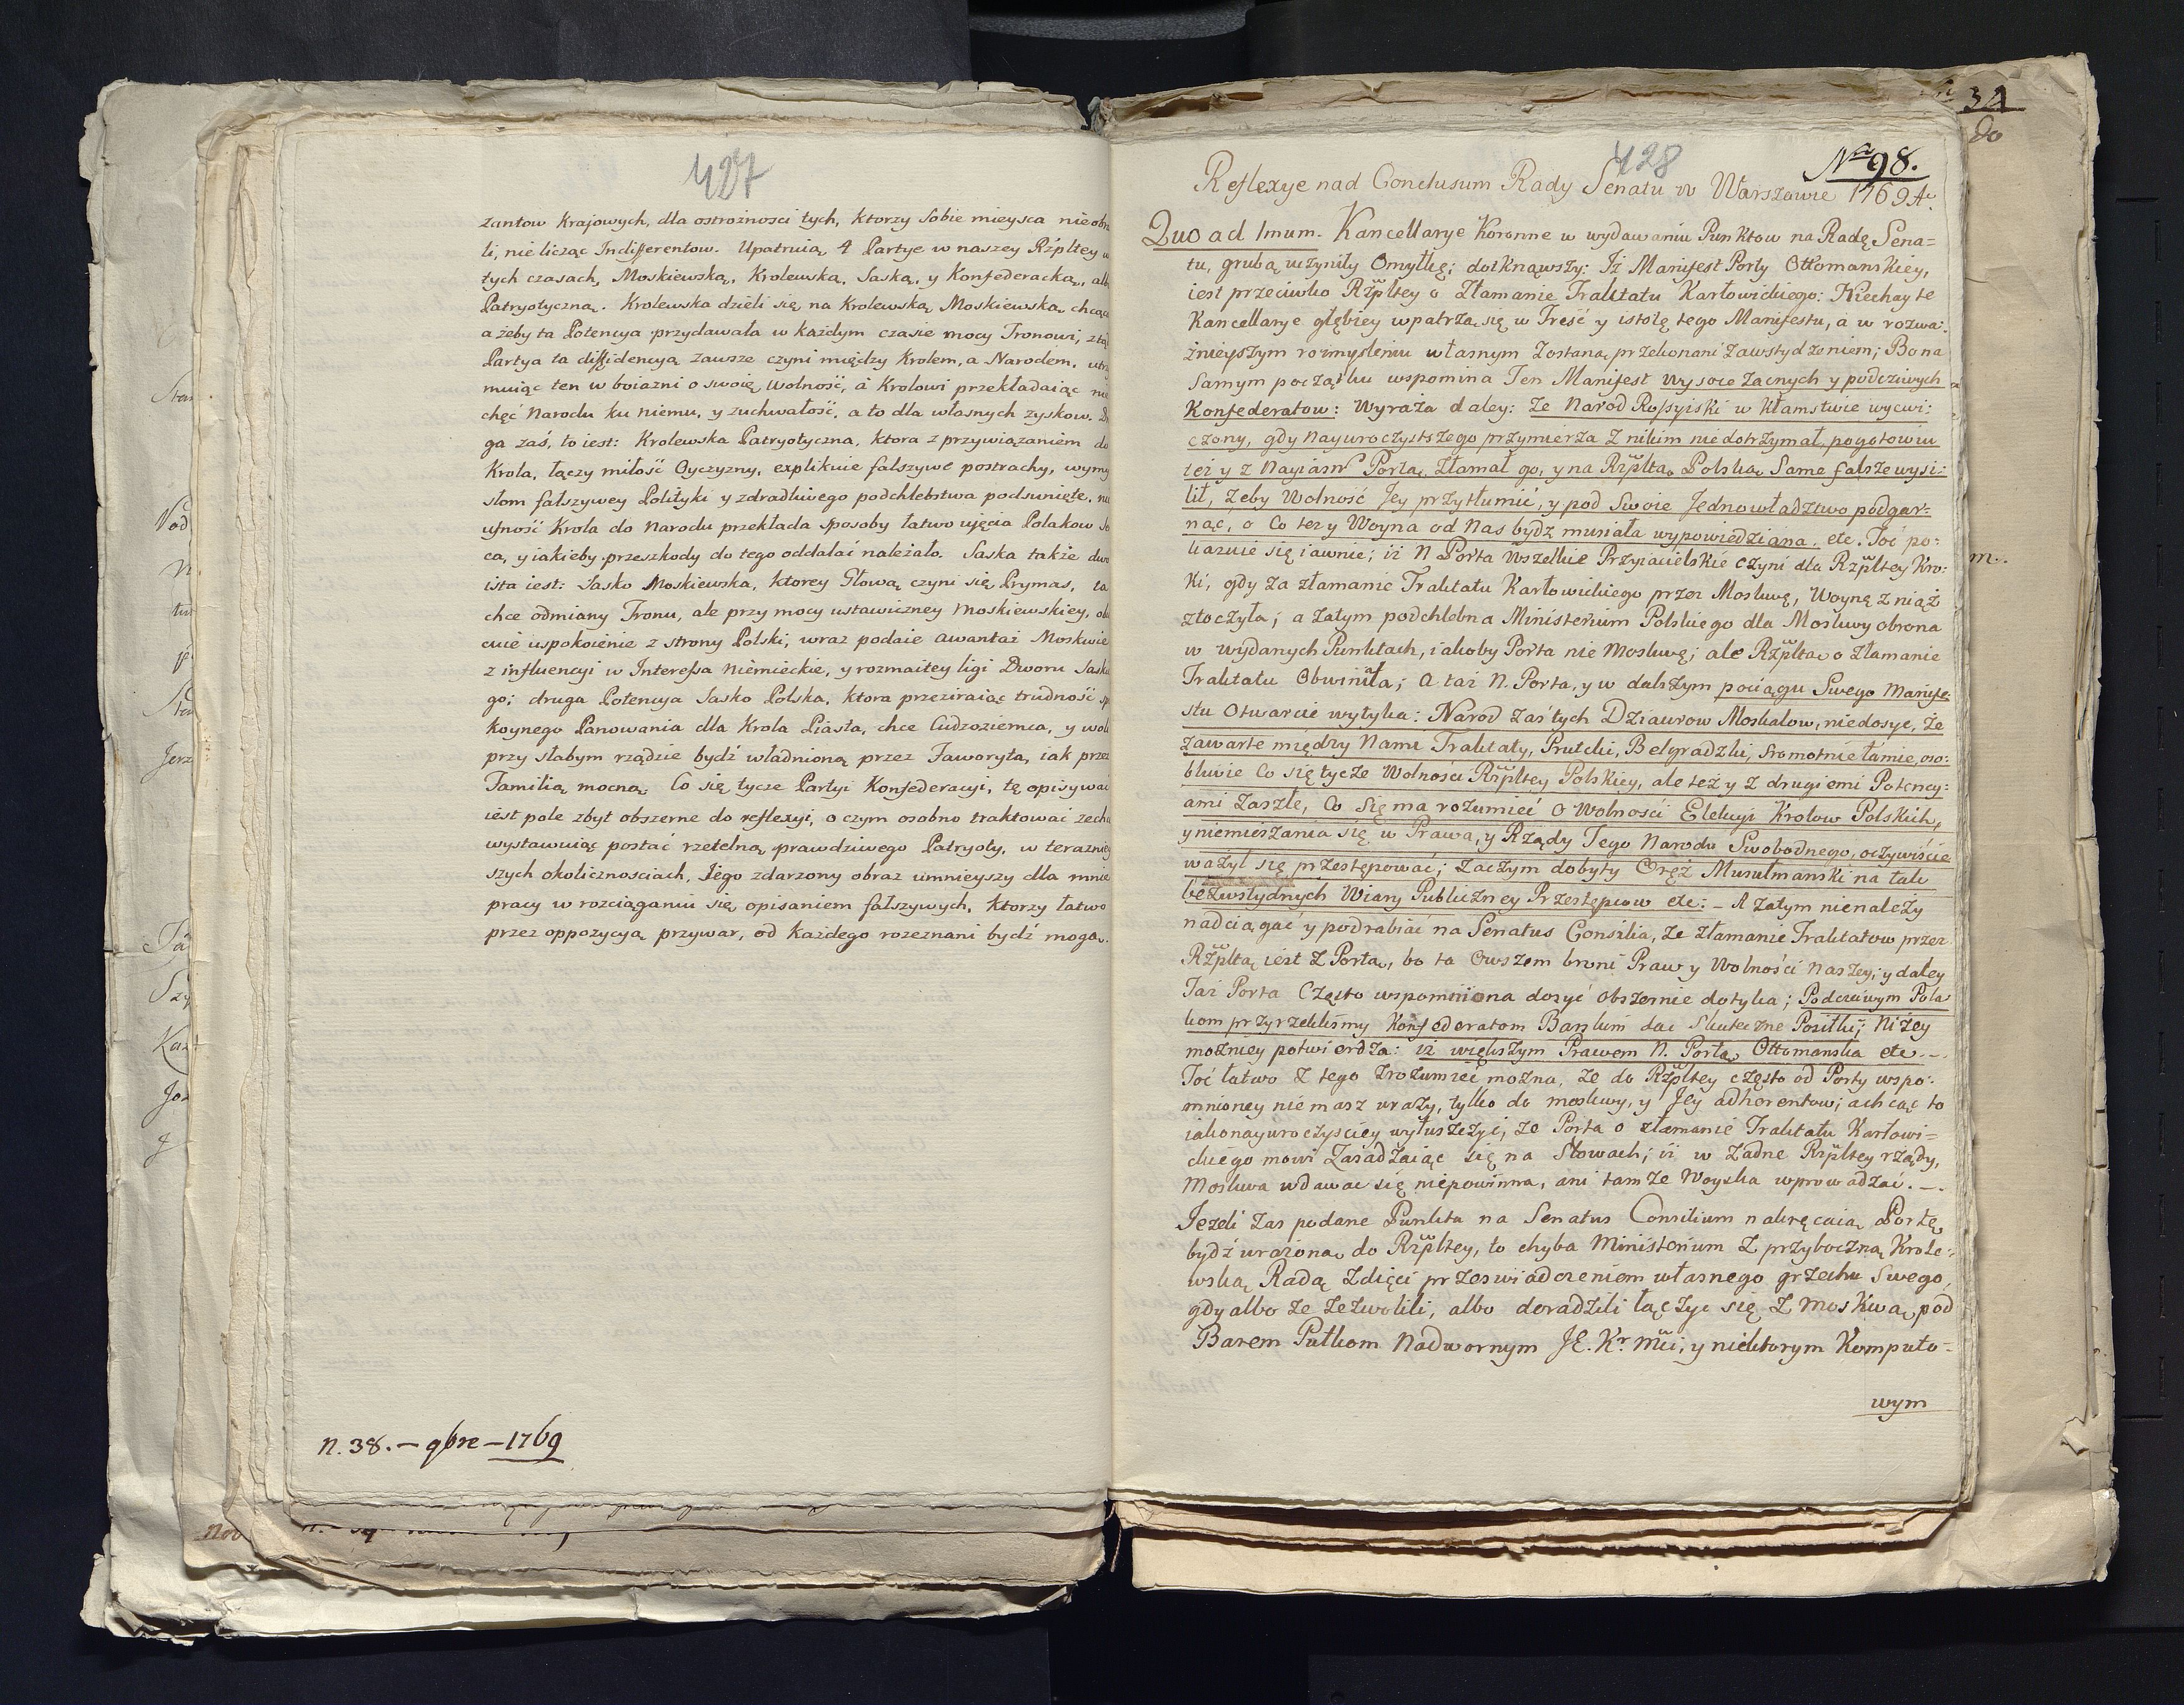 427
zantow Krajowych, dla ostrożnosci tych, ktorzy sobie mieysca nieobra
li, nie licząc Indifferentow. Upatruią 4 Partye w naszey Rzpltey w
tych czasach, Moskiewską, Krolewską, Saską, y Konfederacką, alb
Patryotyczną. Krolewska dzieli się na Krolewską Moskiewską chcąc
a żeby ta Potencya przydawała w każdym czasie mocy Tronowi, ztą
Partya ta diffidencyą zawsze czyni między Krolem, a Narodem, utrzy
muiąc ten w boiazni o swoię wolność, á Krolowi przekładaiąc nie
chęć Narodu ku niemu, y zuchwałość, a to dla własnych zyskow. Dru
ga zaś, to iest: Krolewska Patryotyczna, ktora z przywiązaniem do
Krola, łączy miłość Oyczyzny, explikuie fałszywe postrachy, wymy
słom fałszywey Polityki y zdradliwego podchlebstwa podsunięte, nie
ufność Krola do Narodu przekłada sposoby łatwo ujęcia Polakow ser
ca, y iakieby przeszkody do tego oddalać należało. Saska także dwo
ista iest: Sasko Moskiewska, ktorey Głową czyni się Prymas, ta
chce odmiany Tronu, ale przy mocy ustawiczney Moskiewskiey, obie
cuié uspokoienie z strony Polski, wraz podaie awantaż Moskwie
z influencyi w Interessa Niemieckie, y rozmaitey ligi Dworu Saskie
go; druga Potencya Sasko Polska, ktora przeziraiąc trudność spo
koynego Panowania dla Krola Piasta, chce Cudzoziemca, y woli
przy słabym rządzie bydź władnioną przez Faworyta, iak przez
Familią mocną. Co się tycze Partyi Konfederacyi, tę opisywać
iest pole zbyt obszerne do reflexyi, o czym osobno traktować zechc
wystawuiąc postać rzetelną prawdziwego Patryoty, w teraznie
szych okolicznosciach, Jego zdarzony obraz umnieyszy dla mnie
pracy w rozciąganiu się opisaniem fałszywych, ktorzy łatwo
przez oppozycyą przywar, od każdego rozeznani bydź mogą.
N. 38. – 9bre – 1769
34
do
428
Nro 98.
Reflexye nad Conclusum Rady Senatu w Warszawie 1769 Ao.
Quo ad 1mum. Kancellarye Koronne w wydawaniu Punktow na Radę Sena=
tu, grubą uczyniły Omyłkę; dotknąwszy: Iż Manifest Porty Ottomanskiey,
iest przeciwko Rzpltey o Złamanie Traktatu Karłowickiego: Niechay te
Kancellarye głębiey wpatrzą się w Treść y istotę tego Manifestu, a w rozwa:
żnieyszym rozmysleniu własnym zostaną przekonani zawstydzeniem; Bo na
samym początku wspomina Ten Manifest wysoce zacnych y podcziwych
Konfederatow: wyraża daley: Ze Narod Rossyiski w kłamstwie wycwi:
czony, gdy nayuroczystszego przymierza z nikim niedotrzymał, pogotowiu
też y z Nayiasn Portą złamał go, y na Rzpltą Polską same fałsze wysi:
lił, żeby Wolność Jey przytłumić, y pod swoie Jednowładztwo podgar:
nąć, o Co też y Woyna od Nas bydź musiała wypowiedziana. etc. Toć po:
kazuie się iawnie; iż N Porta wszelkie Przyiacielskie czyni dla Rzpltey Kro:
ki, gdy za złamanie Traktatu Karłowickiego przez Moskwę, Woynę z niąż
złoczyła; a zatym podchlebna Ministerium Polskiego dla Moskwy obrona
w wydanych Punktach, iakoby Porta nie Moskwę; ale Rzpltą o złamanie
Traktatu Obwiniła; a taż N. Porta, y w dalszym pociągu swego Manife:
stu Otwarcie wytyka: Narod zaś tych Dziaurow Moskalow, niedosyc, że
zawarte między Nami Traktaty, Prutski, Belgradzki, sromotnie łamie, oso:
bliwie Co się tycze Wolności Rzpltey Polskiey, ale też y z drugiemi Potency:
ami zaszłe, Co się ma rozumieć o Wolności Elekcyi Krolow Polskich,
y niemieszania się w Prawa, y Rządy Tego Narodu Swobodnego, oczywiście
ważył się przestępować; zaczym dobyty Oręż Musułmanski na tak
bezwstydnych Wiary Publiczney Przestępcow etc: – A zatym nienależy
nadciągać y podrabiać na Senatus Consilia, że złamanie Traktatow przez
Rzpltą iest z Portą, bo ta owszem broni Praw y Wolności naszey; y daley
Taż Porta Często wspomniona dosyć obszernie dotyka; Podcziwym Pola
kom przyrzekliśmy Konfederatom Barskim dac skuteczne Posiłki; Niżey
mozniey potwierdza: iż większym Prawem N. Porta Ottomanska etc. –.
Toć łatwo z tego zrozumieć można, że do Rzpltey często od Porty wspo:
mnioney niemasz urazy, tylko do Moskwy, y Jey adherentow; a chcąc to
iako nayuroczysciey wyłuszczyć, że Porta o złamanie Traktatu Karłowi=
ckiego mowi zasadzaiąc się na Słowach; iż w żadne Rzpltey rządy,
Moskwa wdawać się niepowinna, ani tamże Woyska wprowadzać. –.
Jezeli zas podane Punkta na Senatus Consilium nakręcaią Portę
bydź urażoną do Rzpltey, to chyba Ministerium z przyboczną Krole:
wską Radą zdięci przeswiadczeniem własnego grzechu swego,
gdy albo ze zezwolili, albo doradzili łączyc się z Moskwą pod
Barem Pułkom Nadwornym JE. Kr. Mci, y niektorym Komputo=
wym